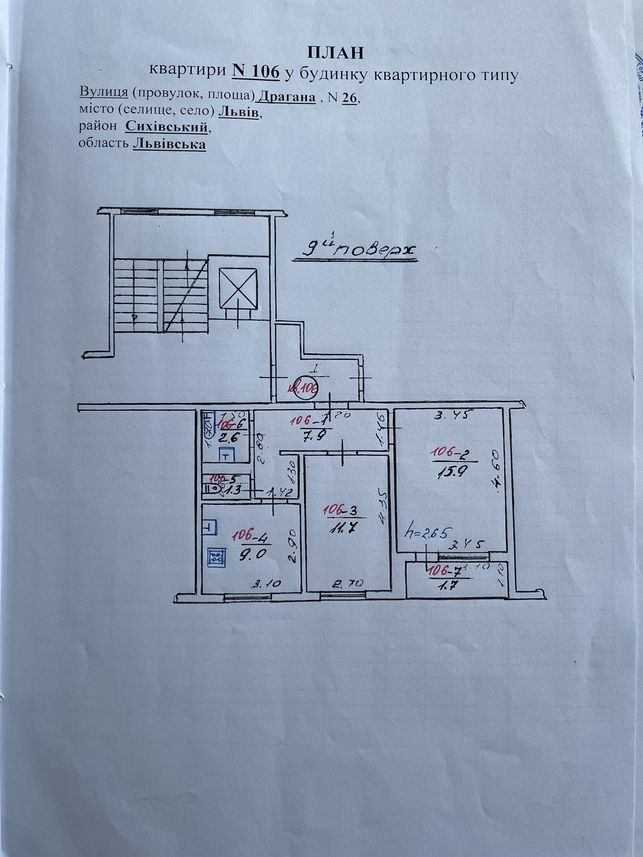 ПЛАН
квартири N 106 у будинку квартирного типу
Вулиця (провулок, площа) Драгана , N 26,
місто (селище, село) Львів,
район Сихівський,
область Львівська
9й поверх
I
кв.106
106-6
2.6
106-1
7.9
1.46
3.45
2.80
106-2
15.9
4.60
106-5
1.3
1.30
1.42
106-3
11.7
4.35
106-4
9.0
2.90
h=2.65
3.45
3.10
2.70
106-7
1.7
1.10